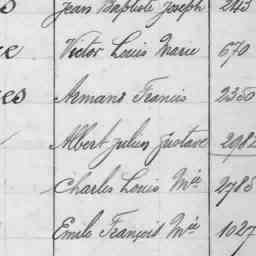 Jean Baptiste Joseph 2413
Victor Louis Marie 670
es Armand Francis 2350
Albert Julien Gustave 2982
Charles Louis Mie 2785
Emile François Mie 1027